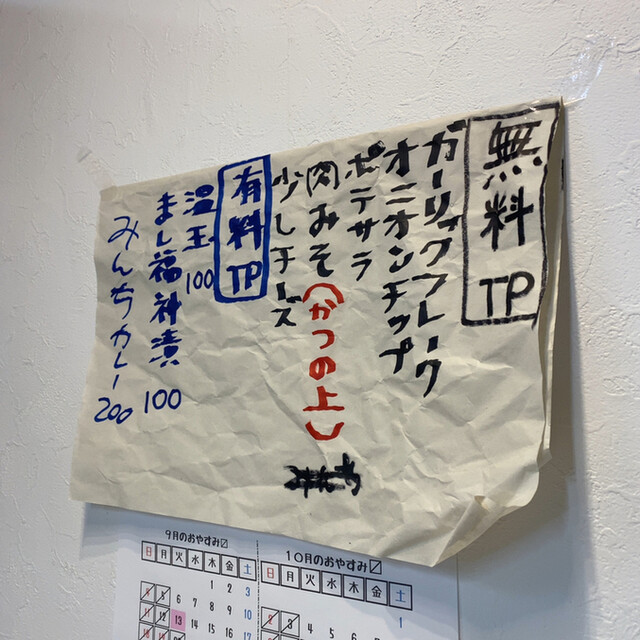 無料TP
ガーリックフレーク
オニオンチップ
ポテサラ
肉みそ(かつの上)
少しチーズ
有料TP
温玉 100
まし福神漬 100
みんちカレー 200
9月のおやすみ
日月火水木金土
1 2 3
4 5 6 7 8 9 10
11 12 13 14 15 16 17
10月のおやすみ
日月火水木金土
1
2 3 4 5 6 7 8